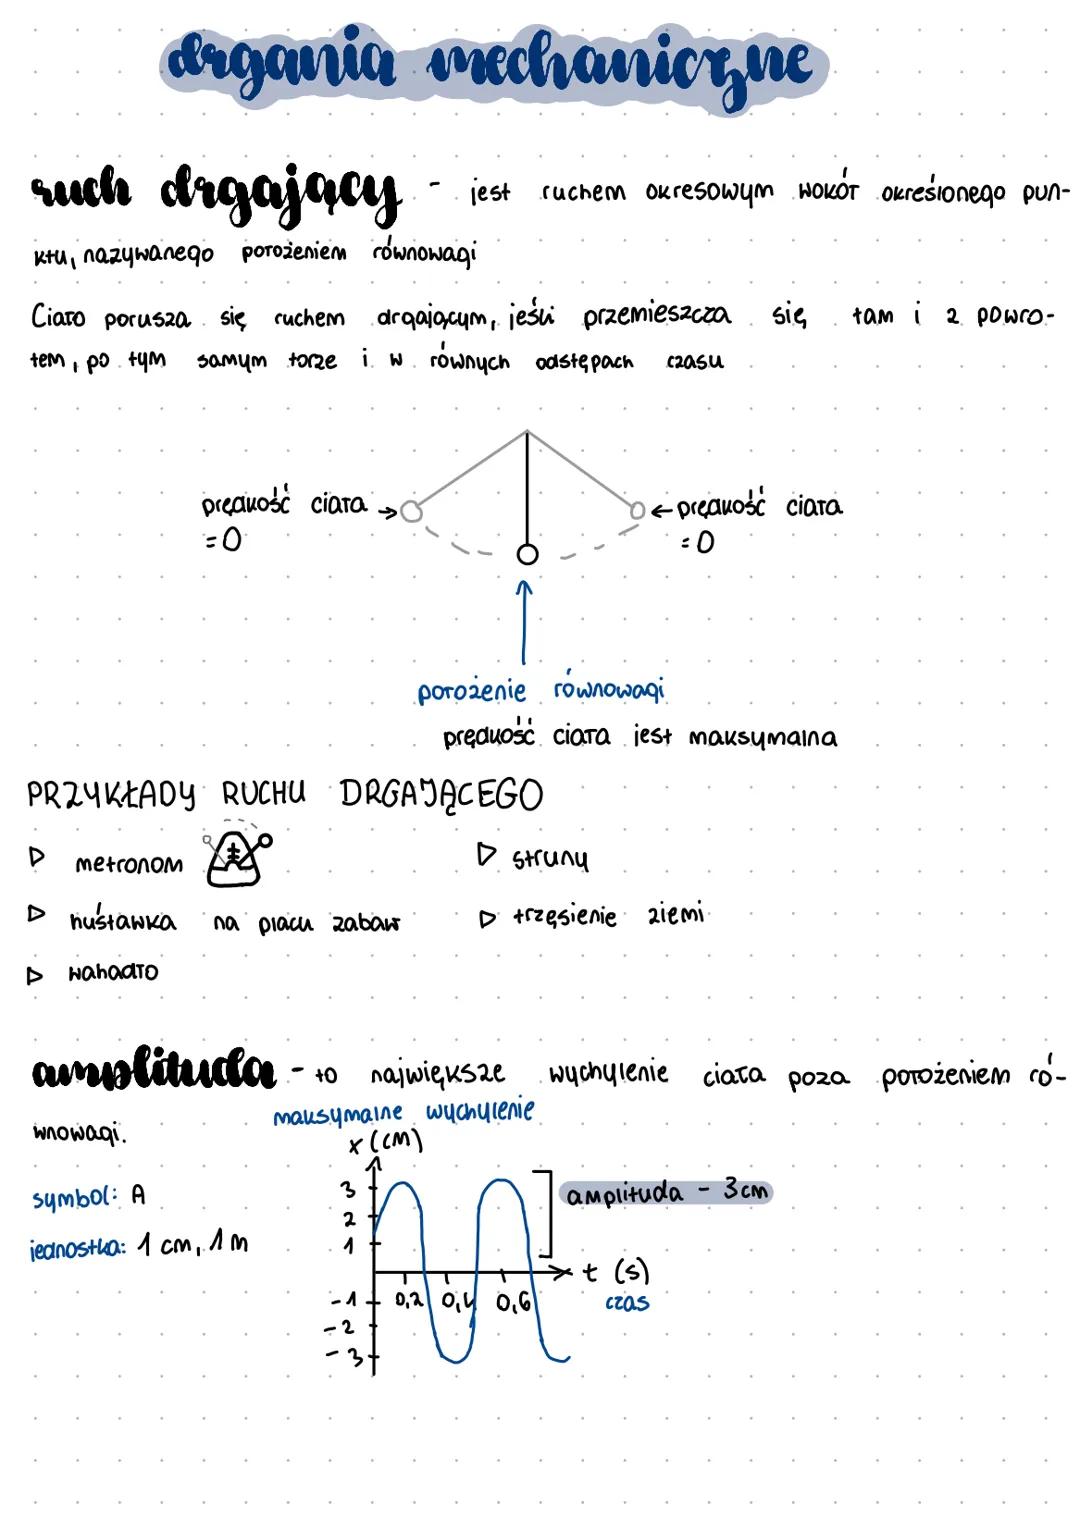 drgania mechaniczne
ruch drgający - jest ruchem okresowym wokół określonego pun-
ktu, nazywanego położeniem równowagi
Ciało porusza się ruchem drgającym, jeśli przemieszcza się tam i z powro-
tem, po tym samym torze i w równych odstępach czasu
prędkość ciała → ← prędkość ciała
= 0 = 0
położenie równowagi
prędkość ciała jest maksymalna
PRZYKŁADY RUCHU DRGAJĄCEGO
▷ metronom ▷ struny
▷ huśtawka na placu zabaw ▷ trzęsienie ziemi
▷ wahadło
amplituda - to największe wychylenie ciała poza położeniem ró-
wnowagi.
maksymalne wychylenie
x (cm)
symbol: A
jednostka: 1 cm, 1 m
3
2
1
-1
-2
-3
0,2 0,4 0,6
amplituda - 3 cm
t (s)
czas